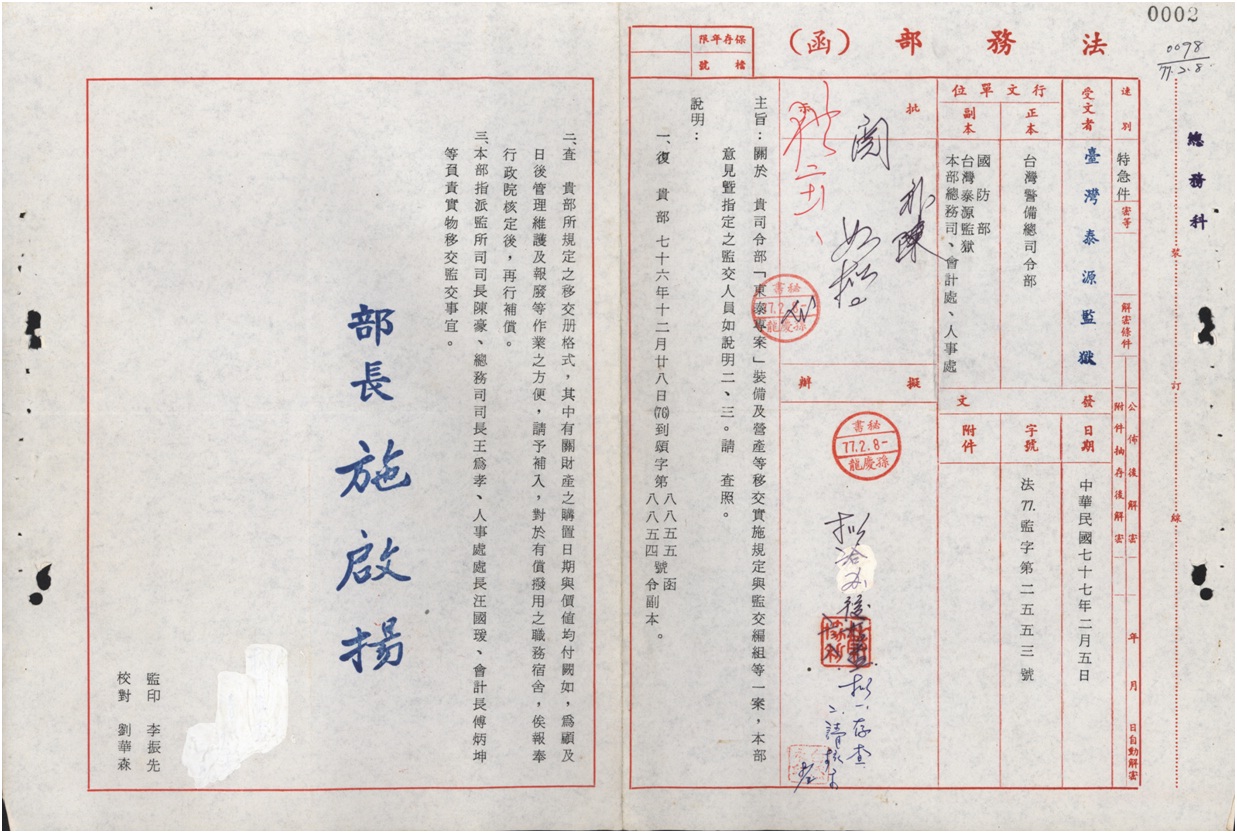 0002
0098
77.2.8.
總務科
裝
訂
線
法務部（函）
保存年限
檔號
速別
特急件
密等
解密條件
公佈後解密
附件抽存後解密
年月日自動解密
受文者
臺灣泰源監獄
行文單位
正本
台灣警備總司令部
副本
國防部
台灣泰源監獄
本部總務司、會計處、人事處
發文
日期
中華民國七十七年二月五日
字號
法77.監字第二五五三號
附件
批示
閱
擬辦
秘書
77.2.8-
孫慶龍
秘書
孫慶龍
主旨：關於　貴司令部「東泰專案」裝備及營產等移交實施規定與監交編組等一案，本部
意見暨指定之監交人員如說明二、三。請　查照。
說明：
一、復　貴部七十六年十二月廿八日(76)到頌字第八八五五號函
八八五四號令副本。
二、查　貴部所規定之移交册格式，其中有關財產之購置日期與價值均付闕如，爲顧及
日後管理維護及報廢等作業之方便，請予補入，對於有償撥用之職務宿舍，俟報奉
行政院核定後，再行補償。
三、本部指派監所司司長陳豪、總務司司長王爲孝、人事處處長汪國瑷、會計長傅炳坤
等負責實物移交監交事宜。
部長施啟揚
監印　李振先
校對　劉華森